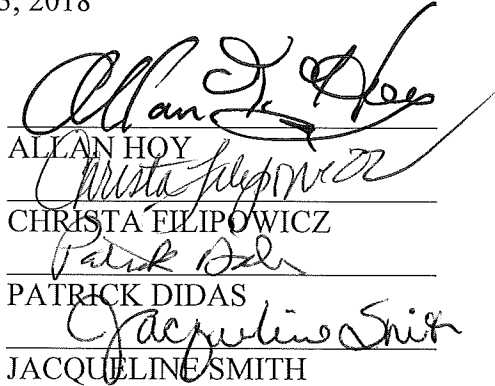 5, 2018
Allan T. Hoy
ALLAN HOY
Christa Filipowicz
CHRISTA FILIPOWICZ
Patrick Didas
PATRICK DIDAS
Jacqueline Smith
JACQUELINE SMITH